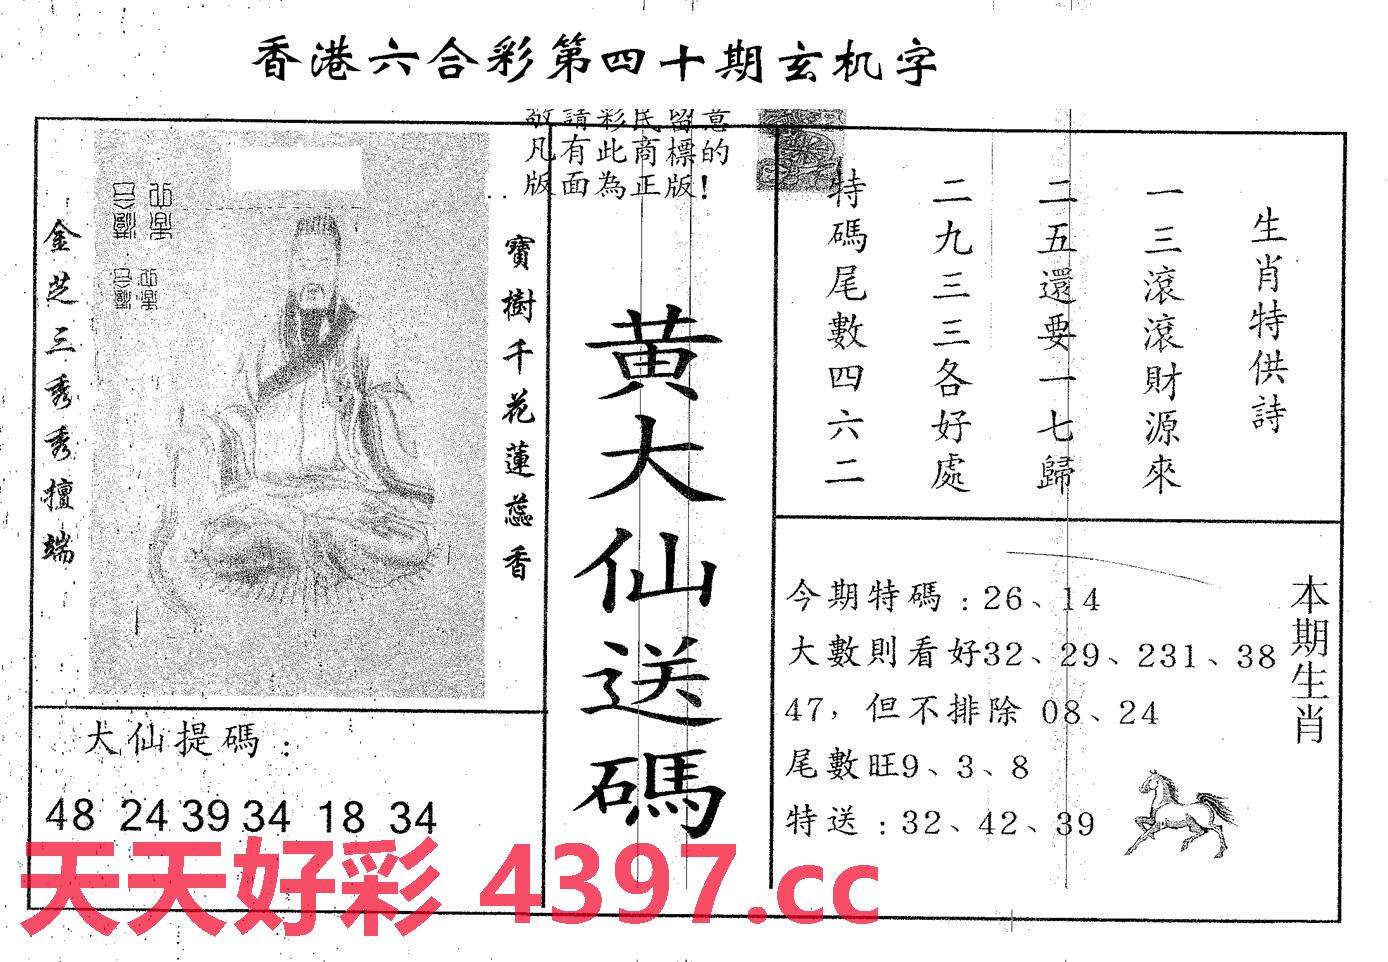 香港六合彩第四十期玄机字
敬請彩民留意
凡有此商標的
版面為正版!
生肖特供詩
一三滾滾財源來
二五還要一七歸
二九三三各好處
特碼尾數四六二
黃大仙送碼
寶樹千花蓮蕊香
金芝三秀秀擅端
大仙提碼:
48 24 39 34 18 34
本期生肖
今期特碼:26、14
大數則看好32、29、231、38
47,但不排除 08、24
尾數旺9、3、8
特送:32、42、39
天天好彩 4397.cc